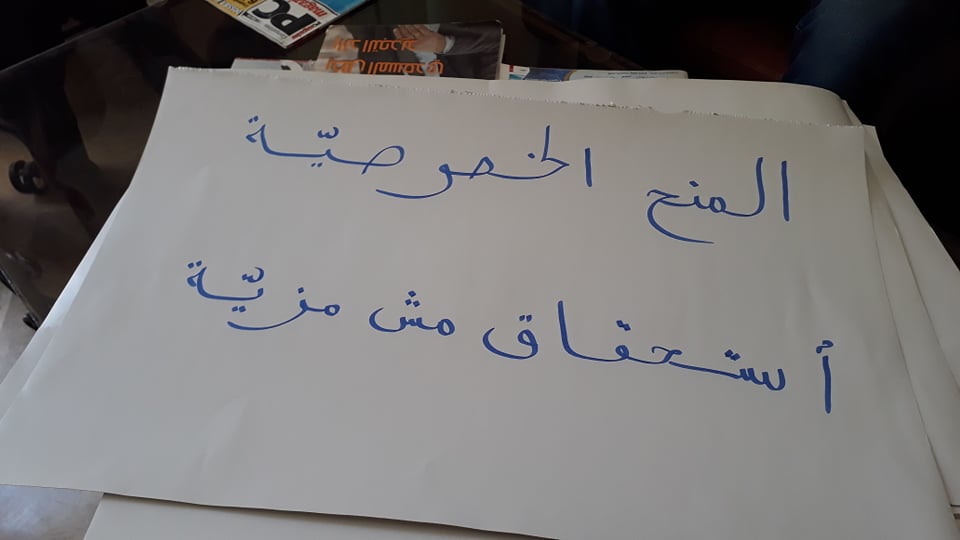 PC
المنح الخصوصيّة
أستحقاق مش مزيّة